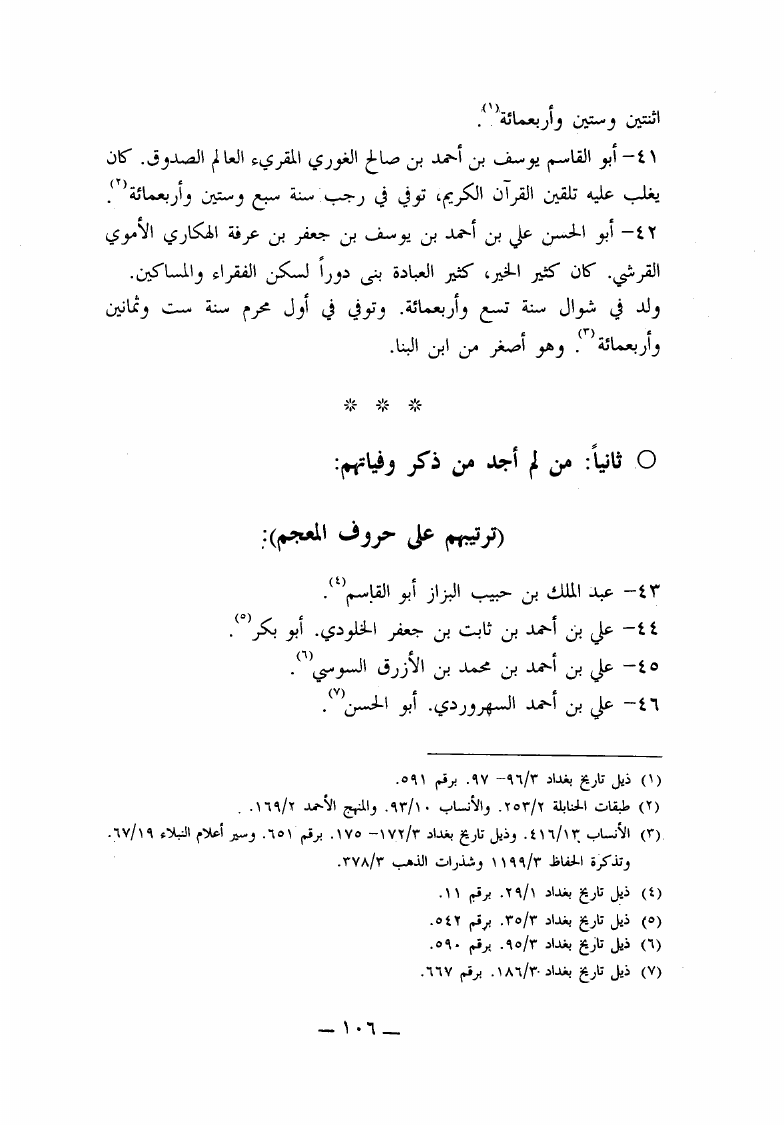 اثنتين وستين وأربعمائة(١).
٤١– أبو القاسم يوسف بن أحمد بن صالح الغوري المقريء العالم الصدوق. كان
يغلب عليه تلقين القرآن الكريم، توفي في رجب سنة سبع وستين وأربعمائة(٢).
٤٢– أبو الحسن علي بن أحمد بن يوسف بن جعفر بن عرفة الهكاري الأموي
القرشي. كان كثير الخير، كثير العبادة بنى دوراً لسكن الفقراء والمساكين.
ولد في شوال سنة تسع وأربعمائة. وتوفي في أول محرم سنة ست وثمانين
وأربعمائة(٣). وهو أصغر من ابن البنا.
* * *
○ ثانياً: من لم أجد من ذكر وفياتهم:
(ترتيبهم على حروف المعجم):
٤٣– عبد الملك بن حبيب البزاز أبو القاسم(٤).
٤٤– علي بن أحمد بن ثابت بن جعفر الخلودي. أبو بكر(٥).
٤٥– علي بن أحمد بن محمد بن الأزرق السوسي(٦).
٤٦– علي بن أحمد السهروردي. أبو الحسن(٧).
(١) ذيل تاريخ بغداد ٩٦/٣– ٩٧. برقم ٥٩١.
(٢) طبقات الحنابلة ٢٥٣/٢. والأنساب ٩٣/١٠. والمنهج الأحمد ١٦٩/٢.
(٣) الأنساب ٤١٦/١٣. وذيل تاريخ بغداد ١٧٢/٣– ١٧٥. برقم ٦٥١. وسير أعلام النبلاء ٦٧/١٩.
وتذكرة الحفاظ ١١٩٩/٣ وشذرات الذهب ٣٧٨/٣.
(٤) ذيل تاريخ بغداد ٢٩/١. برقم ١١.
(٥) ذيل تاريخ بغداد ٣٥/٣. برقم ٥٤٢.
(٦) ذيل تاريخ بغداد ٩٥/٣. برقم ٥٩٠.
(٧) ذيل تاريخ بغداد ١٨٦/٣. برقم ٦٦٧.
— ١٠٦ —